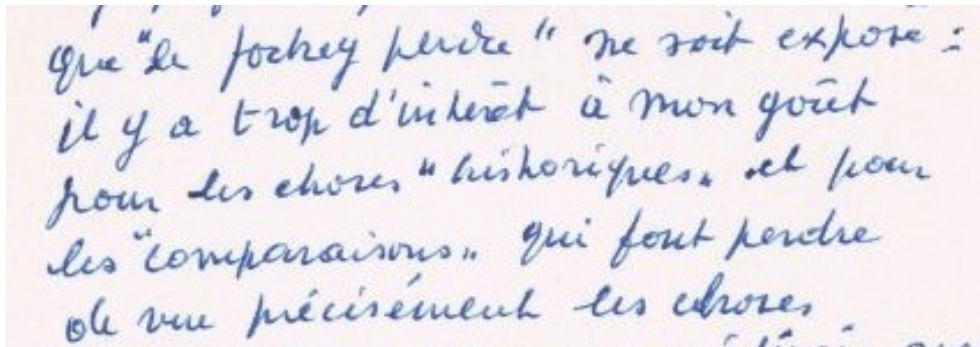 que "le jockey perdu" ne soit exposé :
il y a trop d'intérêt à mon goût
pour les choses "historiques" et pour
les "comparaisons" qui font perdre
de vue précisément les choses